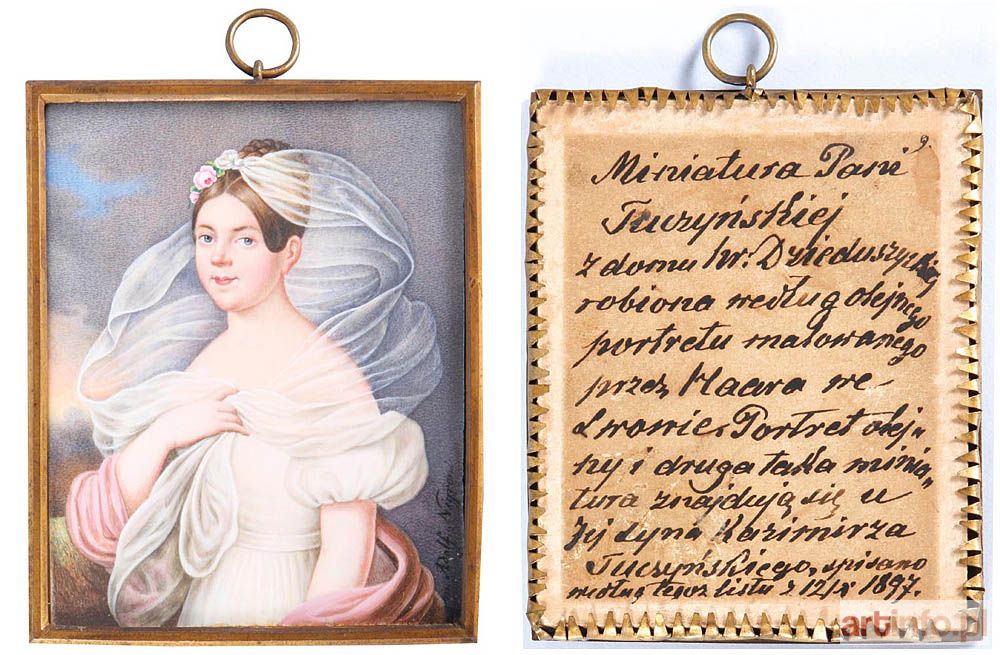 9.
Miniatura Pani
Tuczyńskiej
z domu hr. Dzieduszyckiej
robiona według olejnego
portretu malowanego
przez Maara we
Lwowie. Portret olej„
ny i druga taka minia„
tura znajdują się u
Jej syna Kazimirza
Tuczyńskiego, spisano
według tegoż listu z 12/IX 1897.
artinfo.pl